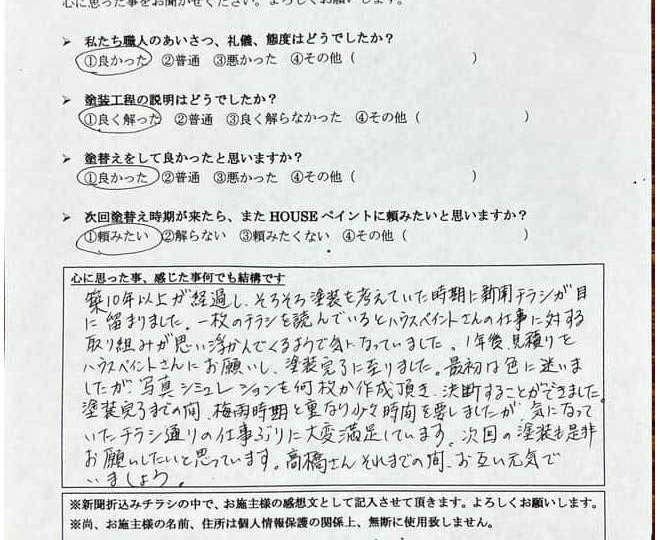 心に思った事をお聞かせください。よろしくお願いします。
➢ 私たち職人のあいさつ、礼儀、態度はどうでしたか？
①良かった ②普通 ③悪かった ④その他（ ）
➢ 塗装工程の説明はどうでしたか？
①良く解った ②普通 ③良く解らなかった ④その他（ ）
➢ 塗替えをして良かったと思いますか？
①良かった ②普通 ③悪かった ④その他（ ）
➢ 次回塗替え時期が来たら、また HOUSE ペイントに頼みたいと思いますか？
①頼みたい ②解らない ③頼みたくない ④その他（ ）
心に思った事、感じた事何でも結構です
築10年以上が経過し、そろそろ塗装を考えていた時期に新聞チラシが目
に留まりました。一枚のチラシを読んでいるとハウスペイントさんの仕事に対する
取り組みが思い浮かんでくるようで気になっていました。1年後、見積りを
ハウスペイントさんにお願いし、塗装完了に至りました。最初は色に迷いま
したが、写真シミュレーションを何枚か作成頂き、決断することができました。
塗装完了までの間、梅雨時期と重なり少々時間を要しましたが、気になって
いたチラシ通りの仕事ぶりに大変満足しています。次回の塗装も是非
お願いしたいと思っています。高橋さん それまでの間、お互い元気で
いましょう。
※新聞折込みチラシの中で、お施主様の感想文として記入させて頂きます。よろしくお願いします。
※尚、お施主様の名前、住所は個人情報保護の関係上、無断に使用致しません。